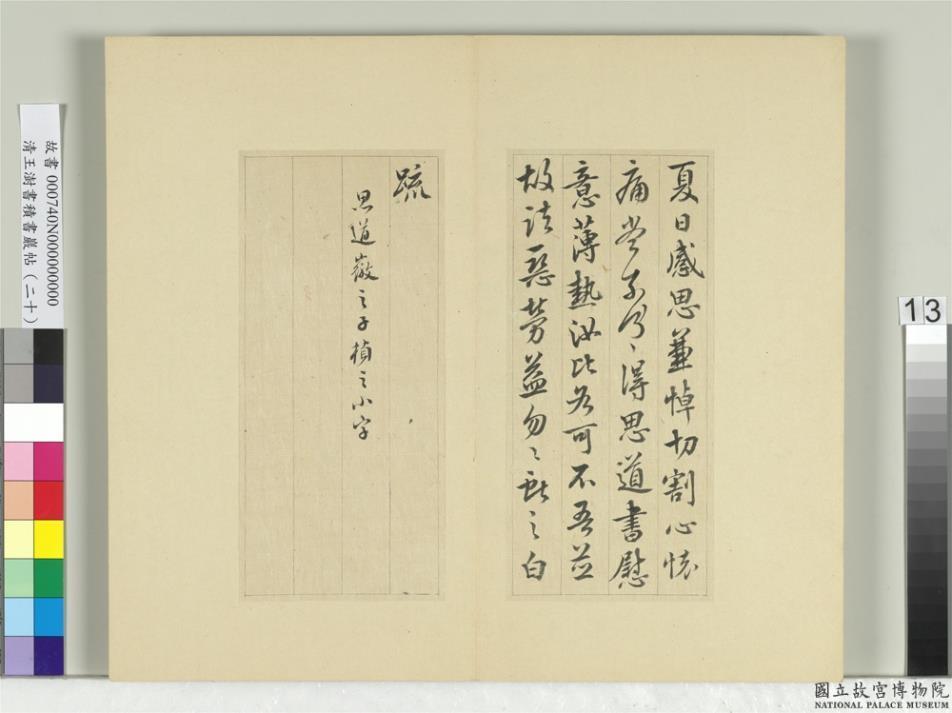 夏日感思兼悼切割心懷
痛當奈何〻得思道書慰
意薄熱汝比各可不吾並
故諸惡勞益勿〻獻之白
疏
思道徽之子楨之小字
故書 000740N000000000
清王澍書積書巖帖（二十）
13
國立故宮博物院
NATIONAL PALACE MUSEUM